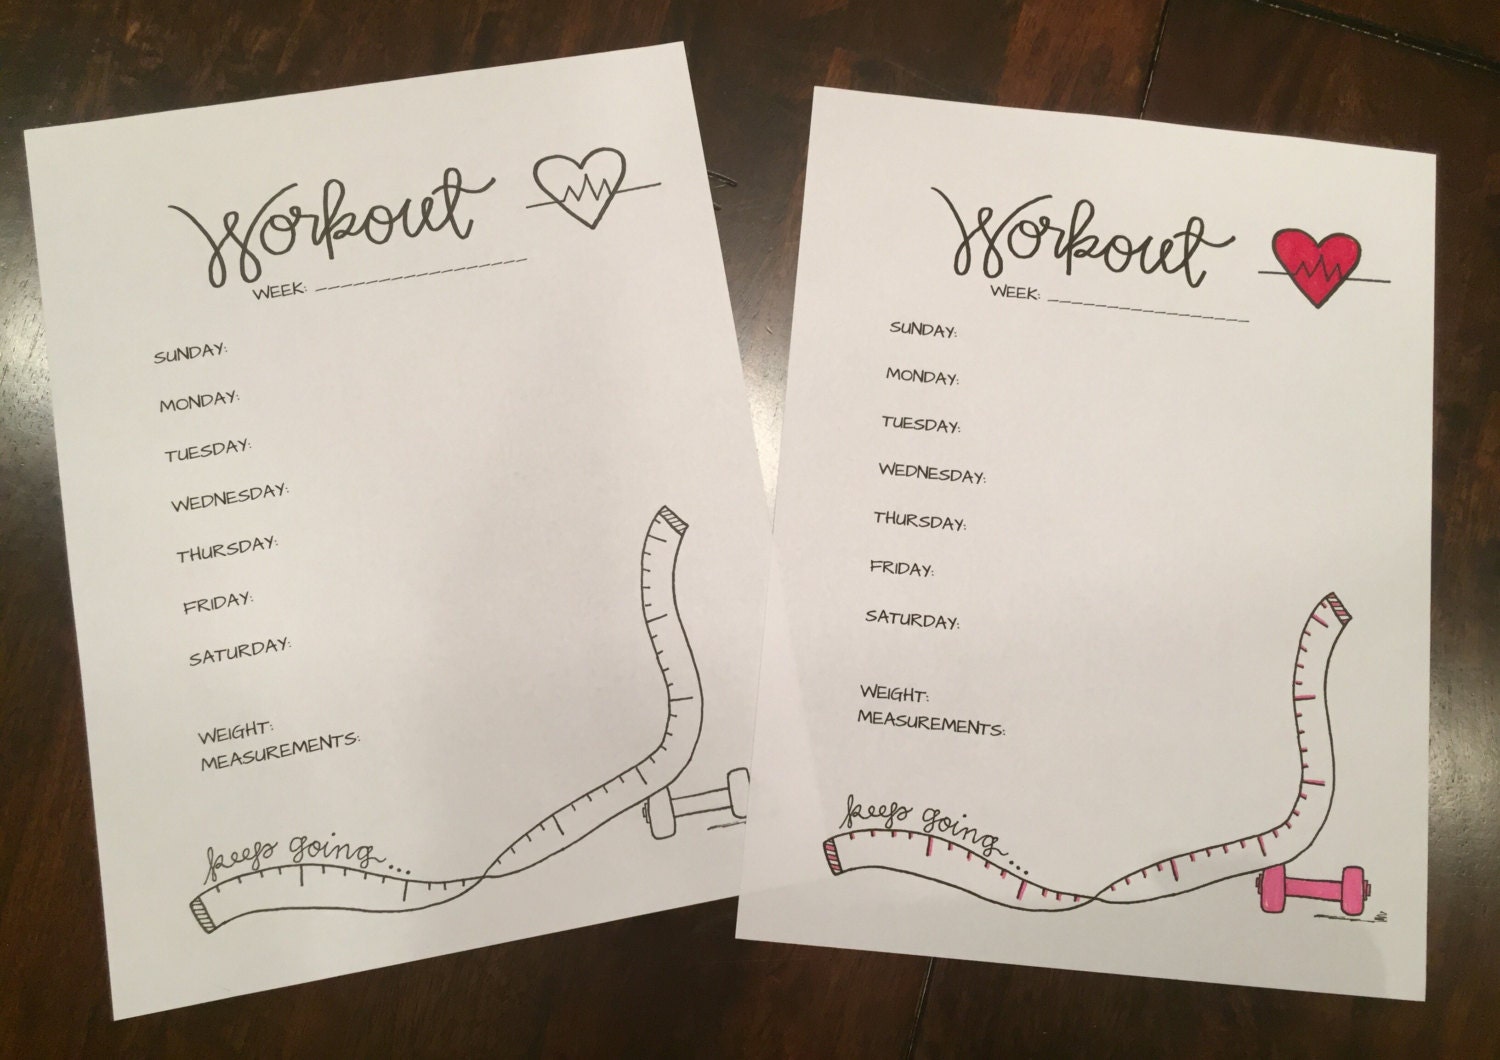 Workout
WEEK: __________________
SUNDAY:
MONDAY:
TUESDAY:
WEDNESDAY:
THURSDAY:
FRIDAY:
SATURDAY:
WEIGHT:
MEASUREMENTS:
keep going...
Workout
WEEK: __________________
SUNDAY:
MONDAY:
TUESDAY:
WEDNESDAY:
THURSDAY:
FRIDAY:
SATURDAY:
WEIGHT:
MEASUREMENTS:
keep going...